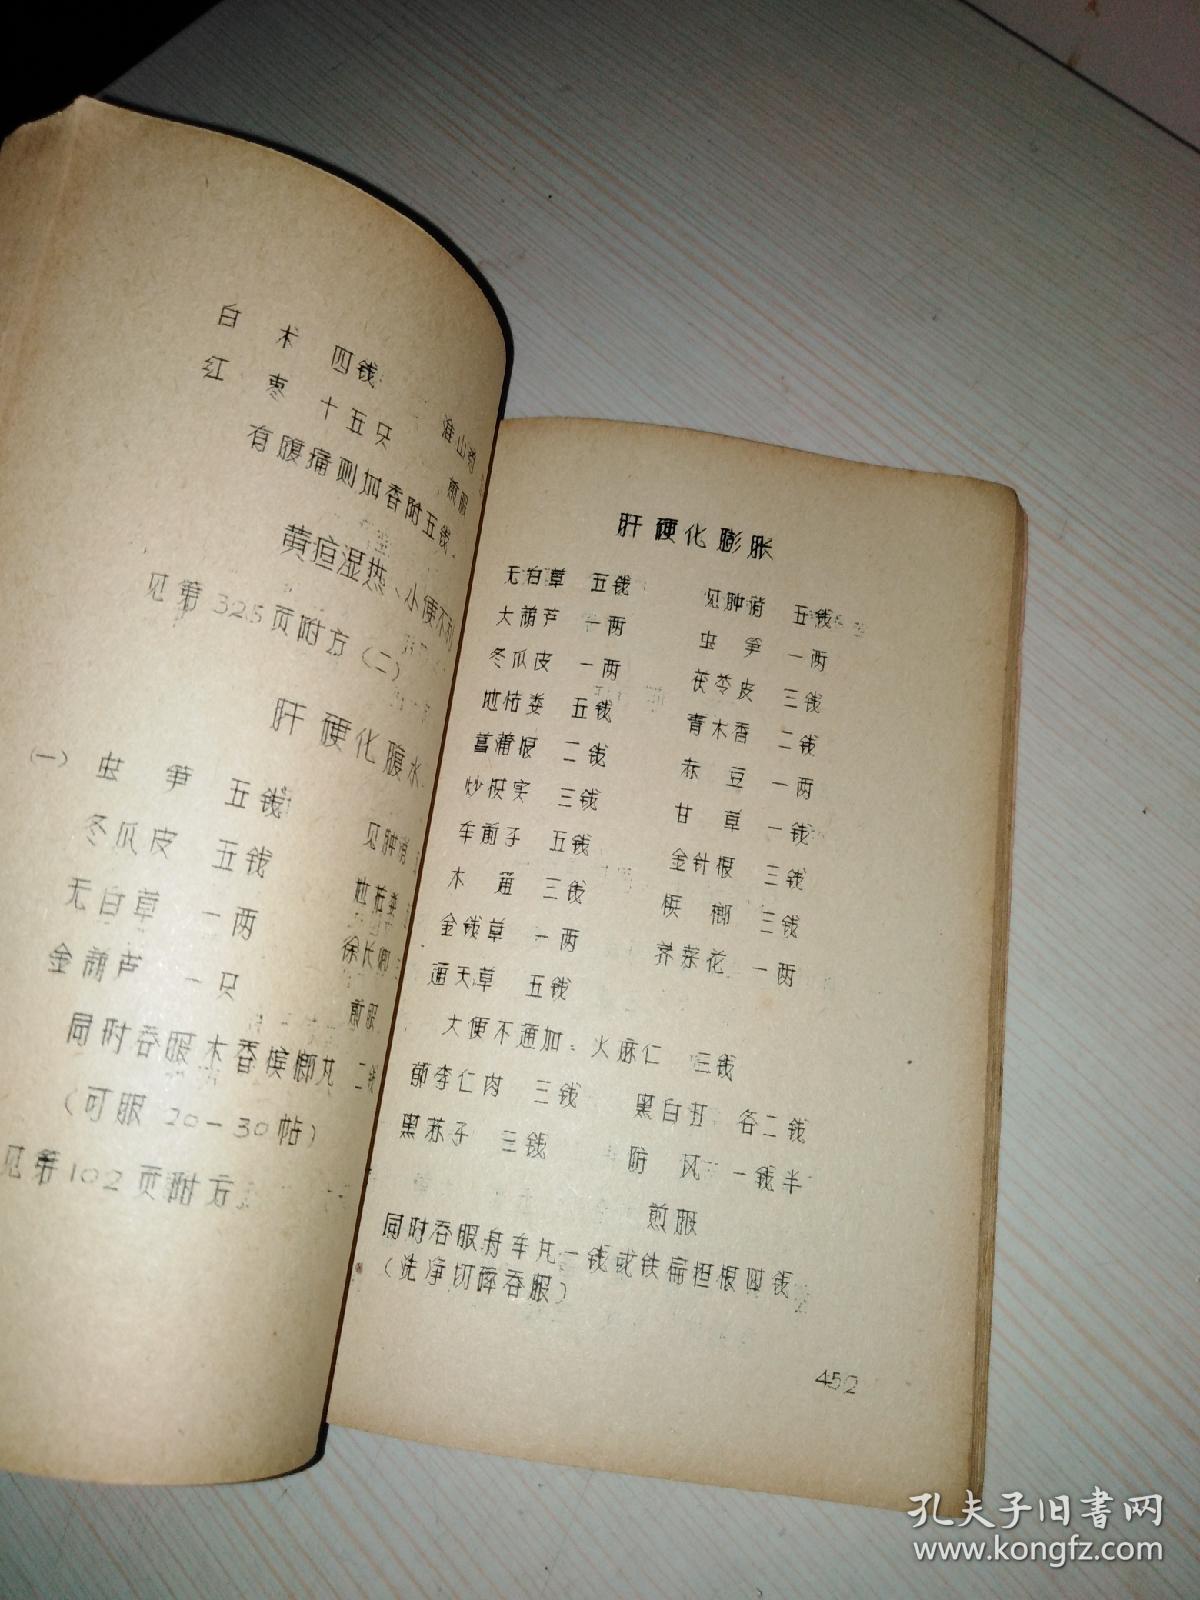 白术 四钱 淮山药
红枣 十五只 煎服
有腹痛则加香附五钱。
黄疸湿热、小便不利
见第325页附方(二)
肝硬化腹水
(一) 虫笋 五钱 见肿消
冬瓜皮 五钱 地枯娄
无白草 一两 徐长卿
金葫芦 一只 煎服
同时吞服木香槟榔丸 二钱
(可服20-30帖)
见第102页附方
肝硬化膨胀
无白草 五钱 见肿消 五钱
大葫芦 一两 虫笋 一两
冬瓜皮 一两 茯苓皮 三钱
地枯娄 五钱 青木香 二钱
菖蒲根 二钱 赤豆 一两
炒枳实 三钱 甘草 一钱
车前子 五钱 金针根 三钱
木通 三钱 槟榔 三钱
金钱草 一两 荞菜花 一两
通天草 五钱
大便不通加:火麻仁 三钱
郁李仁肉 三钱 黑白丑 各二钱
黑苏子 三钱 防风 一钱半
煎服
同时吞服舟车丸一钱或铁扁担根四钱
(洗净切碎吞服)
452
孔夫子旧书网
www.kongfz.com